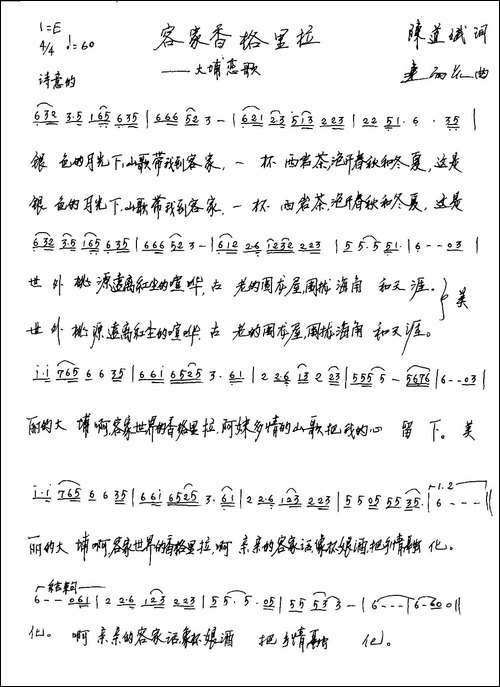 1=E
4/4 ♩=60
客家香格里拉
陈道斌 词
——大埔恋歌
曲
诗意的
632 3·5 165 635 | 666 523 - | 621 23 513 223 | 22 51· 6 · 35 |
银 色的月光下,山歌带我到客家,一 杯 西岩茶,泡开春秋和冬夏,这是
银 色的月光下,山歌带我到客家,一 杯 西岩茶,泡开春秋和冬夏,这是
632 3·5 165 635 | 666 523 - | 612 2·6 1232 223 | 55·5 51· | 6 - - 03 |
世 外 桃 源,远离红尘的喧哗,古 老的围龙屋,围拢 海角 和天涯。 美
世 外 桃 源,远离红尘的喧哗,古 老的围龙屋,围拢 海角 和天涯。
i·i 765 6 6 35 | 66i 6525 3· 61 | 2 2·6 13 2 23 | 555 5 - 5676 | 6 - - 03 |
丽的大 埔啊,客家世界的香格里拉,阿妹多情的山歌把我的心 留 下。美
i·i 765 6 6 35 | 66i 6525 3· 61 | 2 2·6 123 223 | 55 05 55 35· | 6 - - - :|
1.2.
丽的大 埔啊,客家世界的香格里拉,啊 亲亲的客家话,像杯娘酒,把乡情融 化。
结束句
6 - - 061 | 2 2·6 123 223 | 55· 5·05 | 55 533 - | 6 - - - | 6 - 60 0 ||
化。 啊 亲亲的客家话,像杯娘酒 把 乡情融 化。